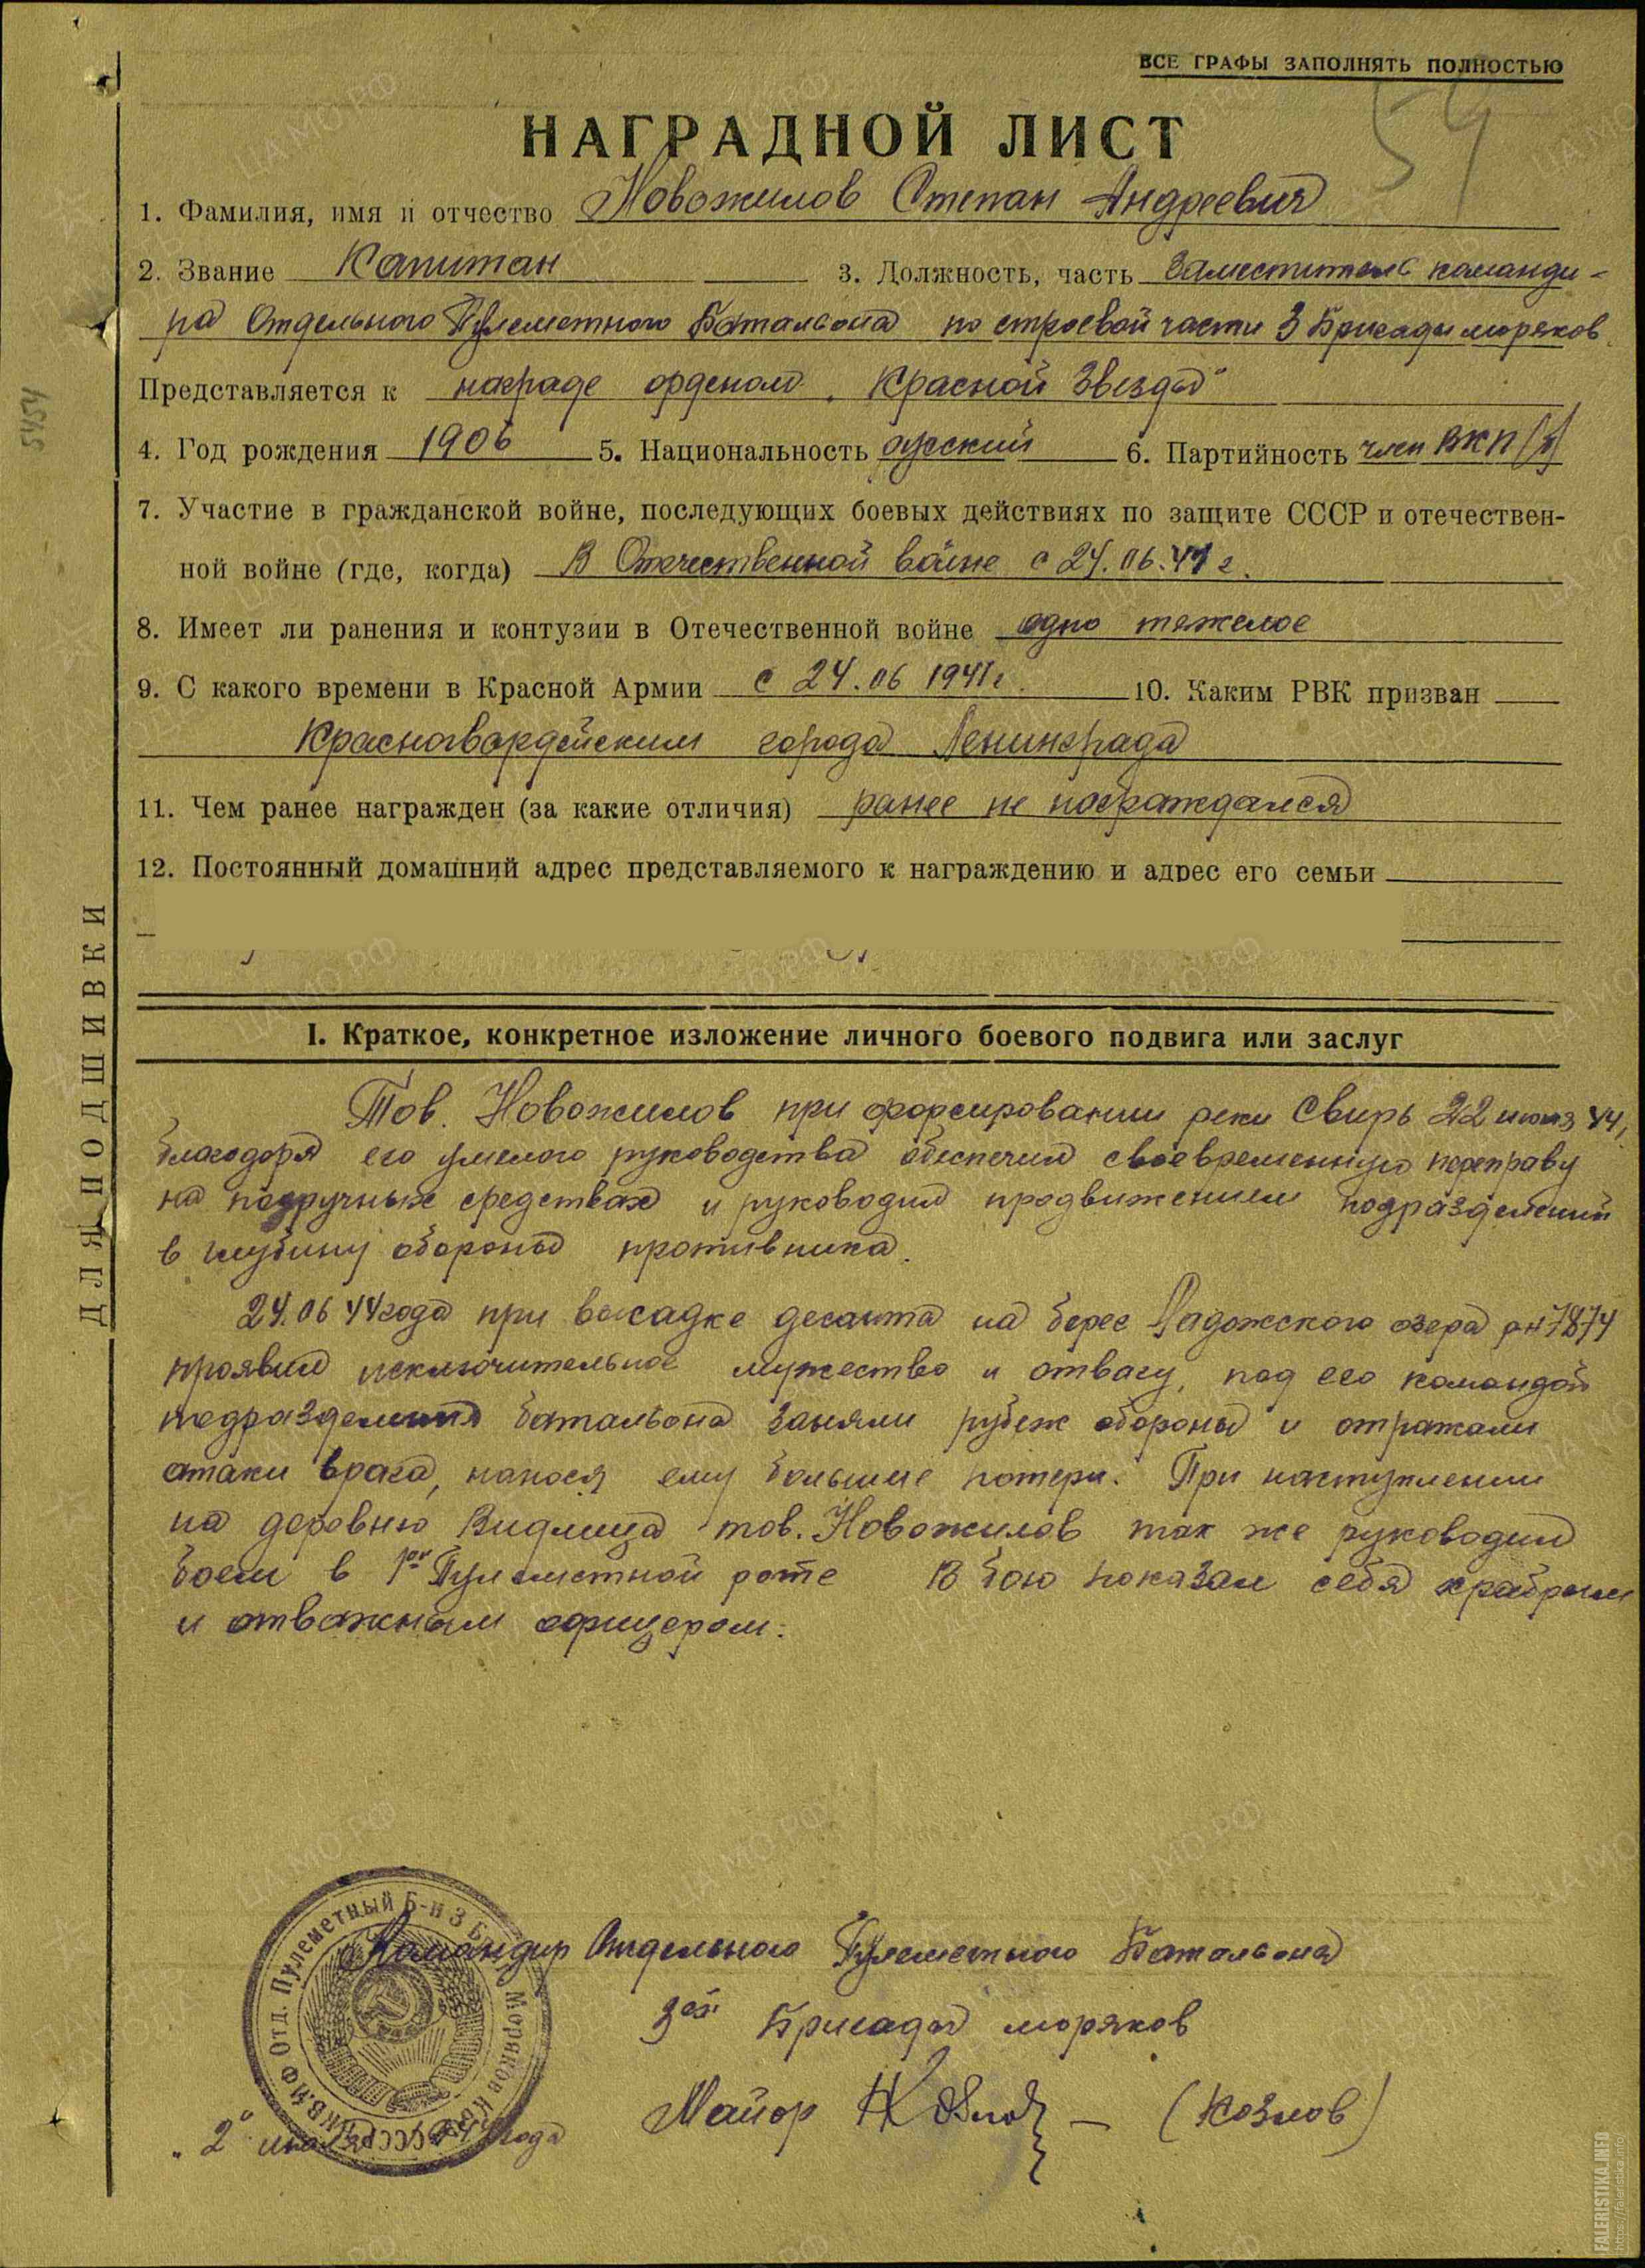 ВСЕ ГРАФЫ ЗАПОЛНЯТЬ ПОЛНОСТЬЮ
54
НАГРАДНОЙ ЛИСТ
1. Фамилия, имя и отчество Новожилов Степан Андреевич
2. Звание Капитан 3. Должность, часть Заместитель команди-
ра Отдельного Пулеметного Батальона по строевой части 3 Бригады моряков
Представляется к награде орденом "Красной Звезды"
4. Год рождения 1906 5. Национальность русский 6. Партийность член ВКП(б)
7. Участие в гражданской войне, последующих боевых действиях по защите СССР и отечествен-
ной войне (где, когда) В Отечественной войне с 24.06.41 г.
8. Имеет ли ранения и контузии в Отечественной войне одно тяжелое
9. С какого времени в Красной Армии с 24.06 1941 г. 10. Каким РВК призван
Красногвардейским города Ленинграда
11. Чем ранее награжден (за какие отличия) ранее не награждался
12. Постоянный домашний адрес представляемого к награждению и адрес его семьи
ДЛЯ ПОДШИВКИ
I. Краткое, конкретное изложение личного боевого подвига или заслуг
Тов. Новожилов при форсировании реки Свирь 22 июня 44,
благодоря его умелого руководства обеспечил своевременную переправу
на подручных средствах и руководил продвижением подразделений
в глубину обороны противника.
24.06 44 года при высадке десанта на берег Ладожского озера 7874
проявил исключительное мужество и отвагу, под его командой
подразделения батальона заняли рубеж обороны и отражали
атаки врага, нанося ему большие потери. При наступлении
на деровню Видлица тов. Новожилов так же руководил
боем в 1ой Пулеметной роте В бою показал себя храбрым
и отважным офицером.
Командир Отдельного Пулеметного Батальона
3ей Бригады моряков
Майор (Козлов)
"2" июля 44 года
Отд. Пулеметный Б-н 3 Моряков КВМФ СССР
ЦАМО.РФ
FALERISTIKA.INFO
https://faleristika.info/